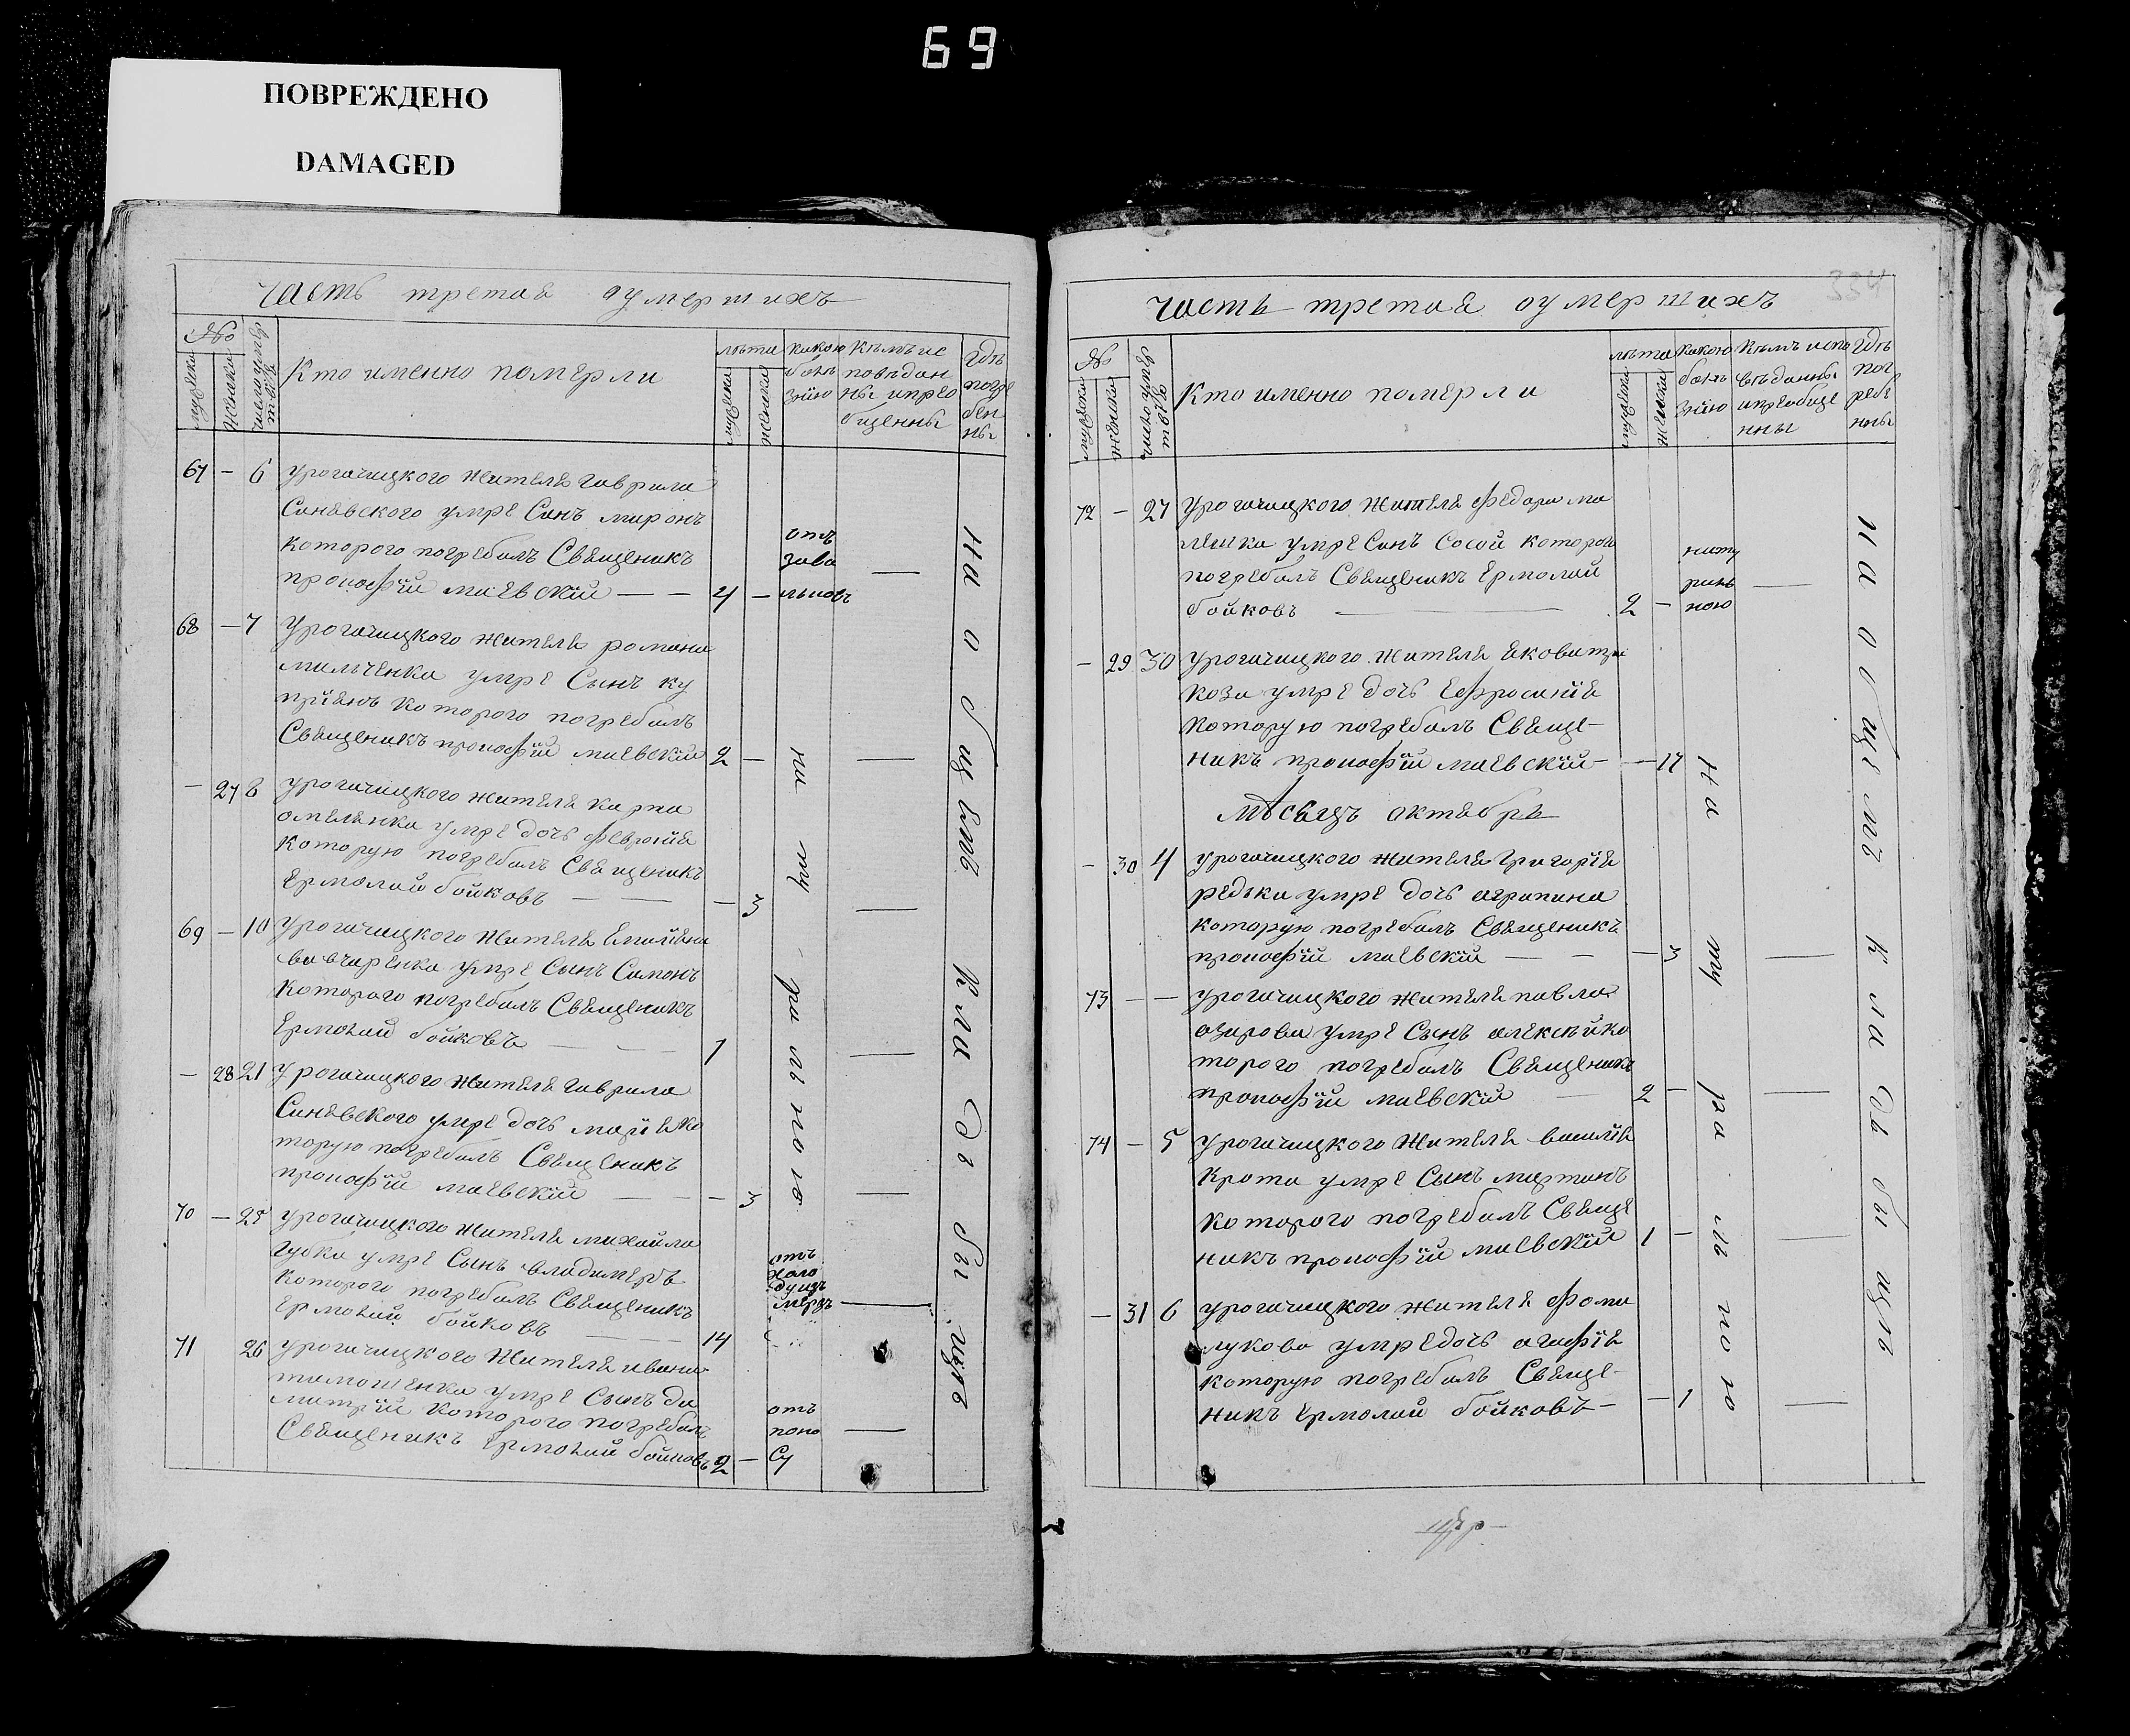 69
ПОВРЕЖДЕНО
DAMAGED
часть третая оумершихъ
№
мужеска
женска
Кто именно померли
лѣта
мужеска
женска
какою
болѣ
знію
Кѣмъ ис
повѣдан
ны ипрео
бщенны
гдѣ
погре
бен
ны
67 - 6 урогачицкого жителя гаврила
Синявского умре Синъ миронъ
которого погребалъ Священикъ
прокофій маевскій — — 4 -
отъ
зава
льновъ
68 - 7 урогачицкого жителя романа
мильченка умре Сынъ ку
пріянъ которого погребалъ
Священикъ прокофій маевскій 2 —
- 27 8 урогачицкого жителя карпа
омеленка умре дочь феврония
которую погребалъ Священикъ
Ермолай бойковъ — — - 3
69 - 10 урогачицкого жителя Емилияна
вовчаренка умре Сынъ Симонъ
которого погребалъ Священикъ
Ермолай бойковъ — — 1
- 28 21 урогачицкого жителя гаврила
Синявского умре дочь марія ко
торую погребалъ Священикъ
прокофій маевскій — - - 3
70 - 25 урогачицкого жителя михайла
губка умре Сынъ владимеръ
которого погребалъ Священикъ
Ермолай бойковъ — — 14
отъ
холо
дуизъ
мерзъ
71 26 урогачицкого жителя ивана
тимошенка умре Сынъ ди
митрій которого погребалъ
Священикъ Ермолай бойковъ 2 —
отъ
поно
Су
натуральною
на общемъ кладбищѣ
334
часть третая оумершихъ
№
мужеска
женска
Кто именно померли
лѣта
мужеска
женска
какою
болѣ
знію
Кѣмъ испо
вѣданны
ипреобще
нны
гдѣ
пог
ребе
нны
72 - 27 урогачицкого жителя федора ма
лешка умре Синъ Сосой которого
погребалъ Священикъ Ермолай
бойковъ — 2 -
нату
раль
ною
- 29 30 урогачицкого жителя якова
коза умре дочь ефросинія
которую погребалъ Свяще
никъ прокофій маевскій - — 17
мѣсяцъ октябрь
- 30 4 урогачицкого жителя григорія
редька умре дочь агрипина
которую погребалъ Священикъ
прокофій маевскій — - — 3
73 - — урогачицкого жителя павла
азарова умре Сынъ алексѣй ко
торого погребалъ Священикъ
прокофій маевскій — 2 -
74 - 5 урогачицкого жителя василія
крота умре Сынъ мартинъ
которого погребалъ Свяще
никъ прокофій маевскій 1 -
- 31 6 урогачицкого жителя фоми
лукова умре дочь агафія
которую погребалъ Свяще-
никъ Ермолай бойковъ - - 1
натуральною
на общемъ кладбищѣ